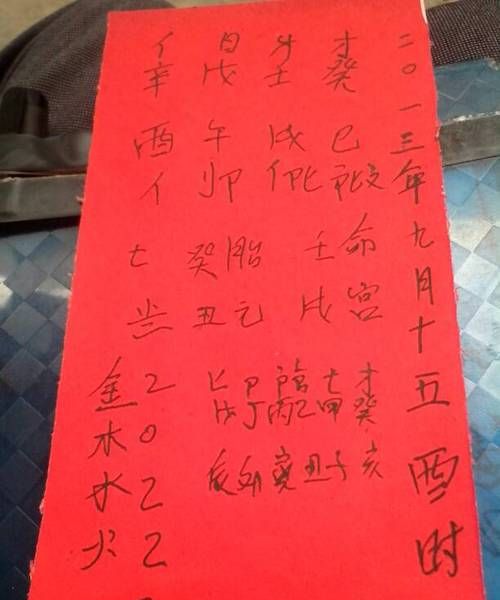 二〇一三年九月十五酉时
才癸巳
壬戌
日戊午卩
亻辛酉亻
命宫
壬戌
胎元
癸丑
七
才癸亥
七甲子
乙丑
丙寅
丁卯
戊辰
金2
木0
水2
火2